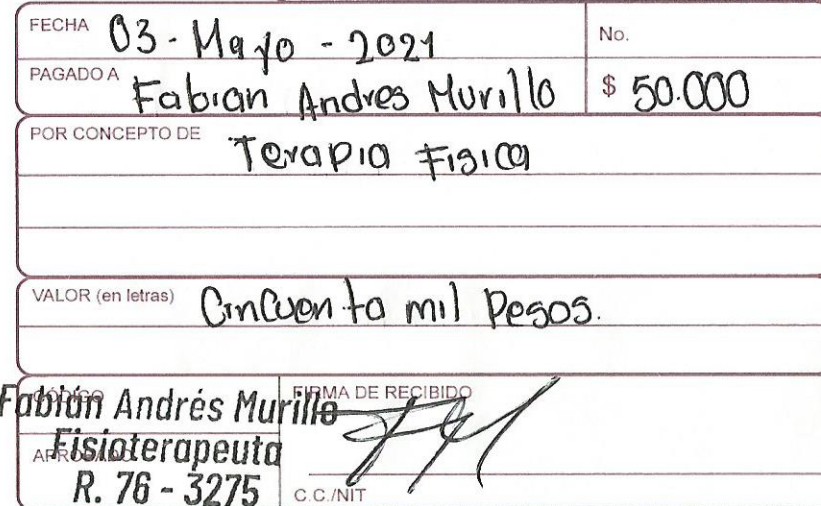 FECHA 03 - Mayo - 2021 No.
PAGADO A Fabian Andres Murillo $ 50.000
POR CONCEPTO DE Terapia Fisica
VALOR (en letras) Cincuenta mil Pesos.
CÓDIGO FIRMA DE RECIBIDO
Fabián Andrés Murillo
APROBADO
Fisioterapeuta
R. 76 - 3275 C.C./NIT